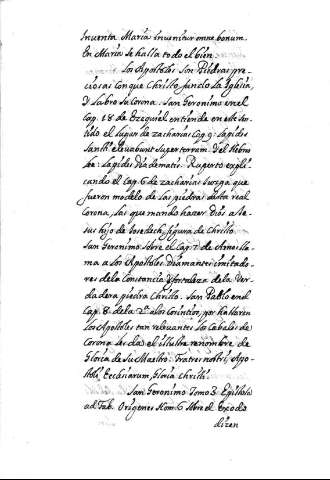 Inventa Maria Invenitur omne bonum
En Maria se halla todo el bien
Los Apostoles Son Piedras pre-
ciosas Conque Christo fundo La Iglesia,
y Labro su Corona. San Geronimo en el
Cap. 18 de Ezequiel entiende en este sen-
tido el Lugar de Zacharias Cap. 9. Lapides
Sancti elevabunt Super terram. Y el Hebreo
lee: Lapides Diadematis. Ruperto expli-
cando el Cap. 6 de Zacharias Juzga que
fueron modelo de Las piedras desta real
Corona, Las que mando hazer Dios a Je-
sus hijo de Josedech, figura de Christo
San Geronimo sobre el Cap. 7 de Amos lla-
ma a los Apostoles Diamantes imitado-
res dela Constancia y fortaleza de la Ver-
dadera piedra Christo. San Pablo en el
Cap. 8 dela 2ª alos Corintios, por hallar en
los Apostoles tan relevantes los Cabales de
Corona les da el illustre renombre de
Gloria de Su Maestro: Fratres nostri, Apos-
toli Ecclesiarum, Gloria Christi.
San Geronimo Tomo 3 Epistola
ad Fab. Origenes Hom. 6 sobre el Exodo
dizen